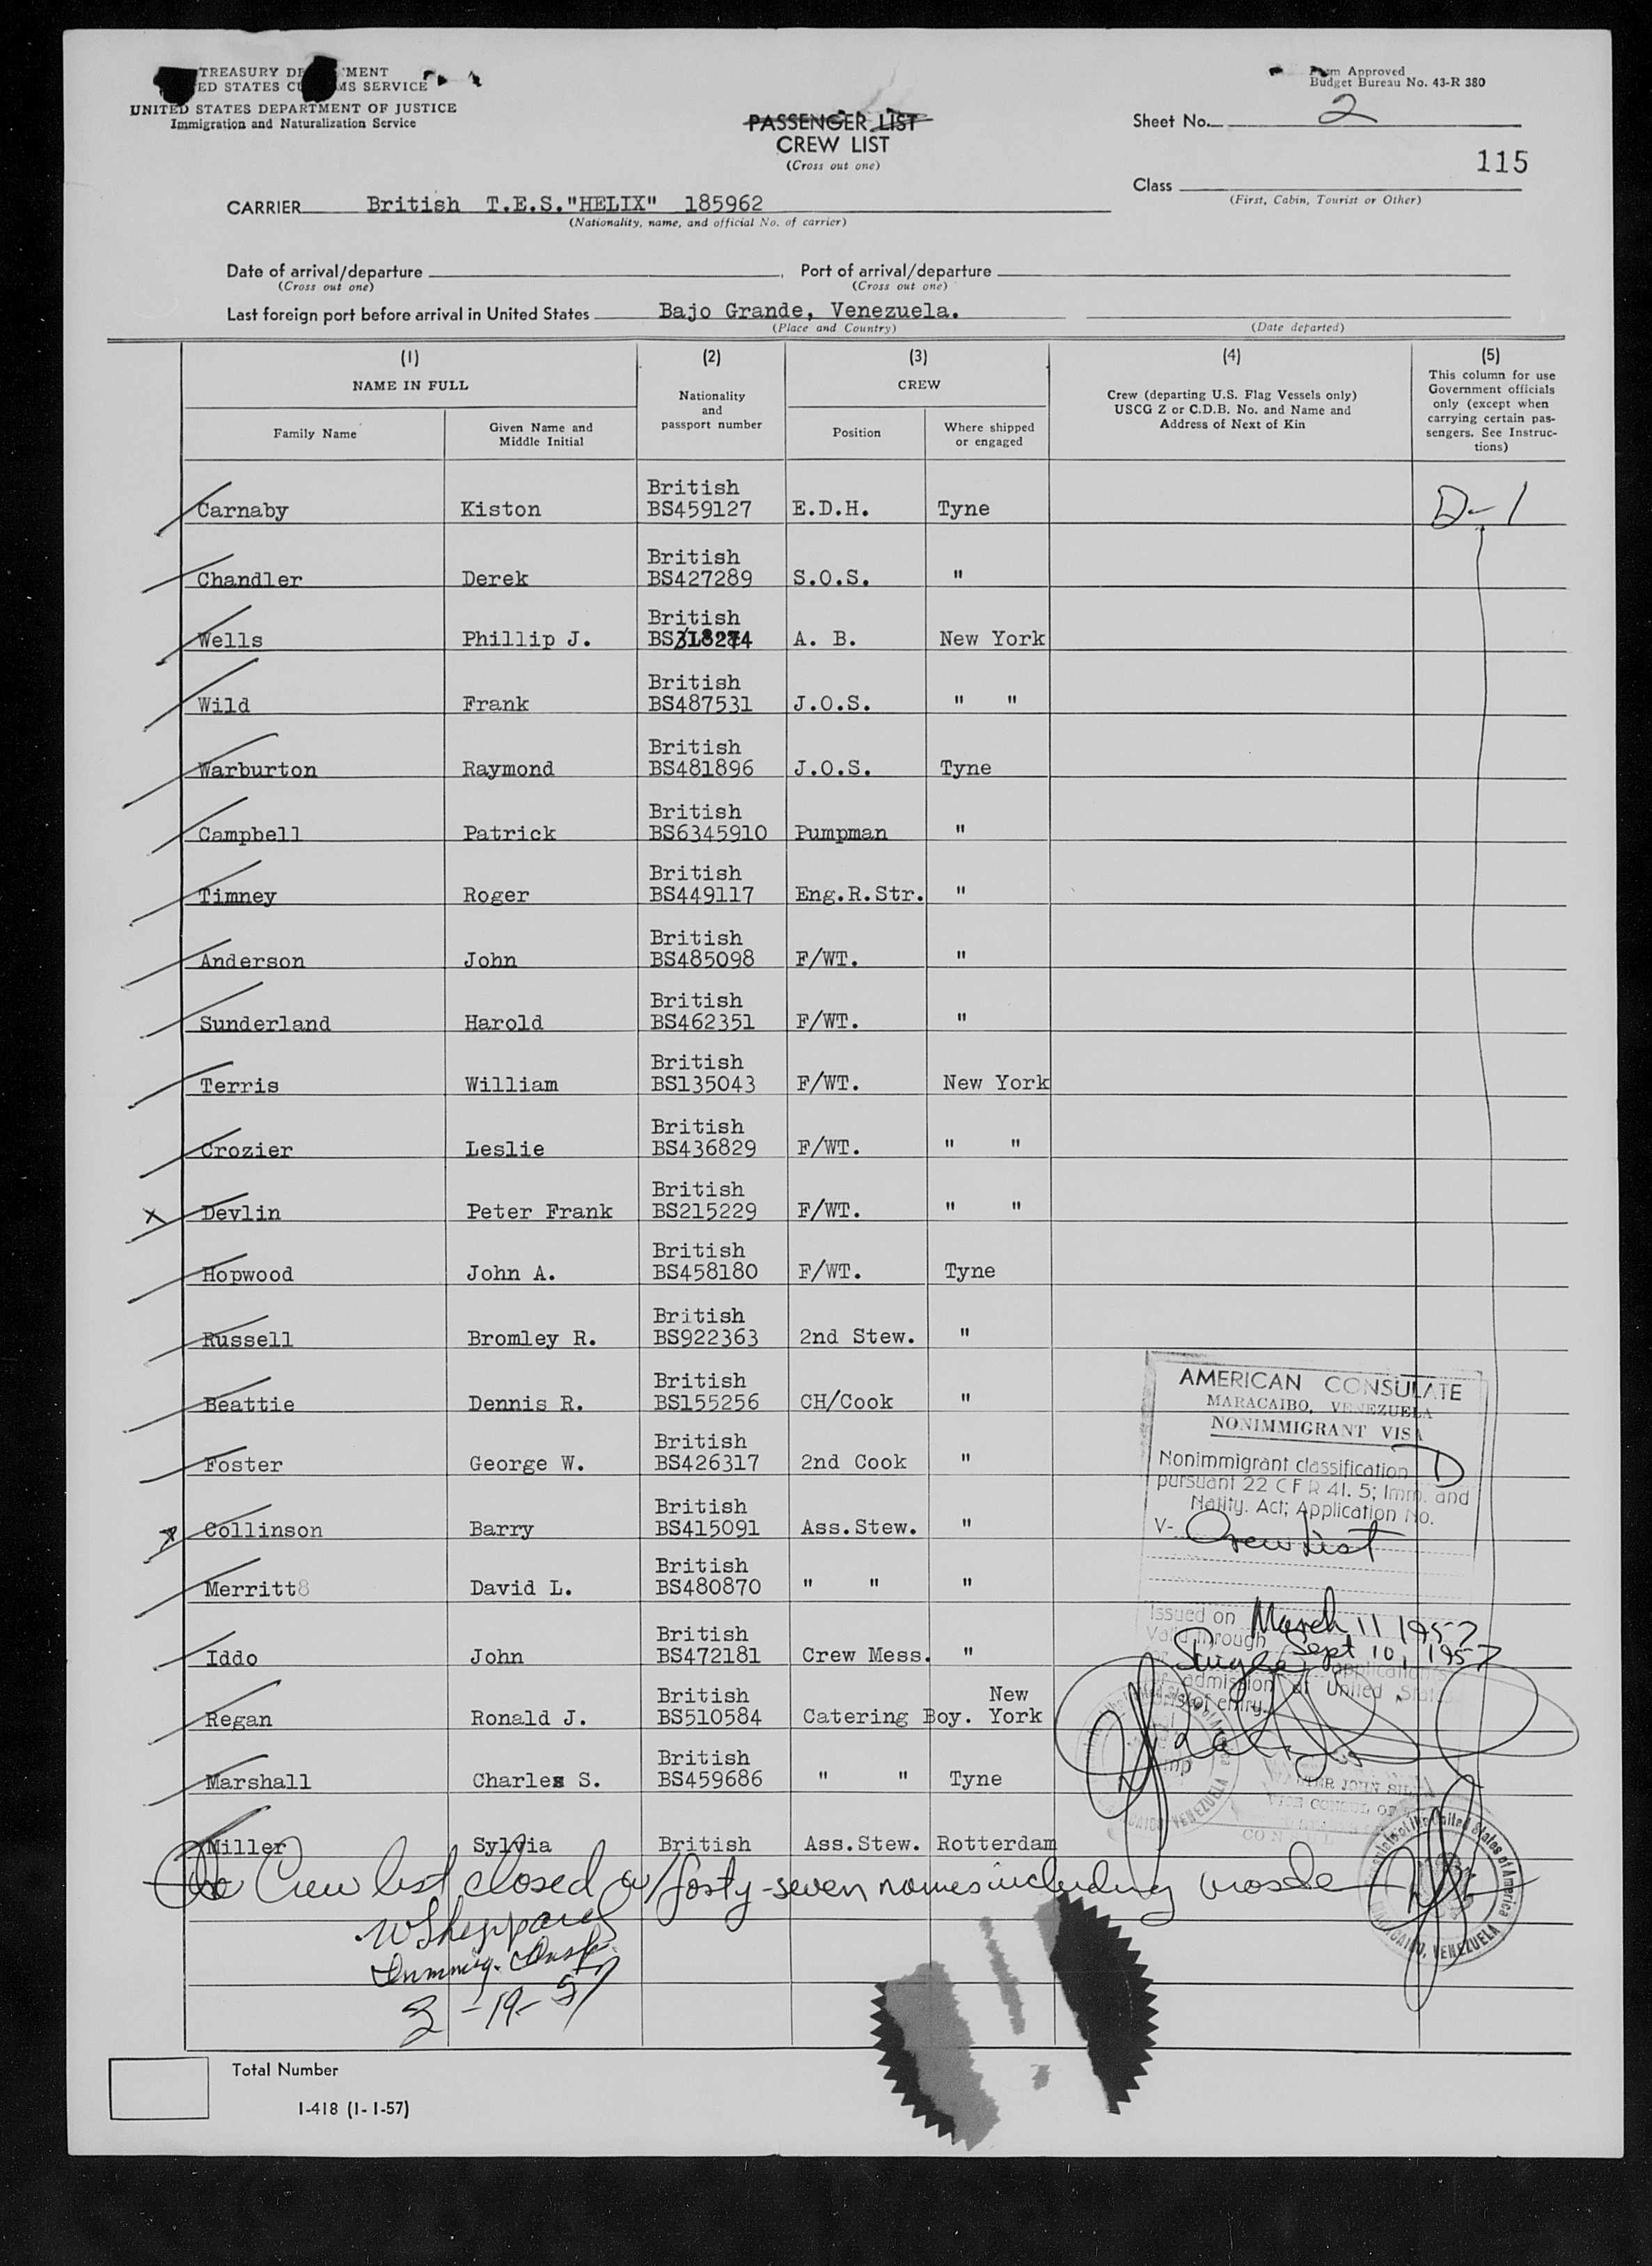 TREASURY DE MENT
ED STATES CU MS SERVICE
UNITED STATES DEPARTMENT OF JUSTICE
Immigration and Naturalization Service
PASSENGER LIST
CREW LIST
(Cross out one)
Form Approved
Budget Bureau No. 43-R 380
Sheet No. 2
115
Class
(First, Cabin, Tourist or Other)
CARRIER British T.E.S."HELIX" 185962
(Nationality, name, and official No. of carrier)
Date of arrival/departure , Port of arrival/departure
(Cross out one) (Cross out one)
Last foreign port before arrival in United States Bajo Grande, Venezuela.
(Place and Country) (Date departed)
(1) (2) (3) (4) (5)
NAME IN FULL
Family Name
Given Name and
Middle Initial
Nationality
and
passport number
CREW
Position
Where shipped
or engaged
Crew (departing U.S. Flag Vessels only)
USCG Z or C.D.B. No. and Name and
Address of Next of Kin
This column for use
Government officials
only (except when
carrying certain pas-
sengers. See Instruc-
tions)
British
Carnaby Kiston BS459127 E.D.H. Tyne D-1
British
Chandler Derek BS427289 S.O.S. "
British
Wells Phillip J. BS318274 A. B. New York
British
Wild Frank BS487531 J.O.S. " "
British
Warburton Raymond BS481896 J.O.S. Tyne
British
Campbell Patrick BS6345910 Pumpman "
British
Timney Roger BS449117 Eng.R.Str. "
British
Anderson John BS485098 F/WT. "
British
Sunderland Harold BS462351 F/WT. "
British
Terris William BS135043 F/WT. New York
British
Crozier Leslie BS436829 F/WT. " "
British
x Devlin Peter Frank BS215229 F/WT. " "
British
Hopwood John A. BS458180 F/WT. Tyne
British
Russell Bromley R. BS922363 2nd Stew. "
British
Beattie Dennis R. BS155256 CH/Cook "
British
Foster George W. BS426317 2nd Cook "
British
x Collinson Barry BS415091 Ass.Stew. "
British
Merritt8 David L. BS480870 " " "
British
Iddo John BS472181 Crew Mess. "
British New
Regan Ronald J. BS510584 Catering Boy. York
British
Marshall Charles S. BS459686 " " Tyne
Miller Sylvia British Ass.Stew. Rotterdam
AMERICAN CONSULATE
MARACAIBO, VENEZUELA
NONIMMIGRANT VISA
Nonimmigrant classification D
pursuant 22 C F R 41. 5; Imm. and
Natlty. Act; Application No.
V- Crew List
Issued on March 11 1957
Valid through Sept 10, 1957
Single applications
for admission at United States
of entry.
VICE CONSUL OF
The Crew list closed w/ forty-seven names including
W Sheppard
Immig. Insp.
3-19-57
Consulate of the United States of America
MARACAIBO, VENEZUELA
Total Number
I-418 (1-1-57)